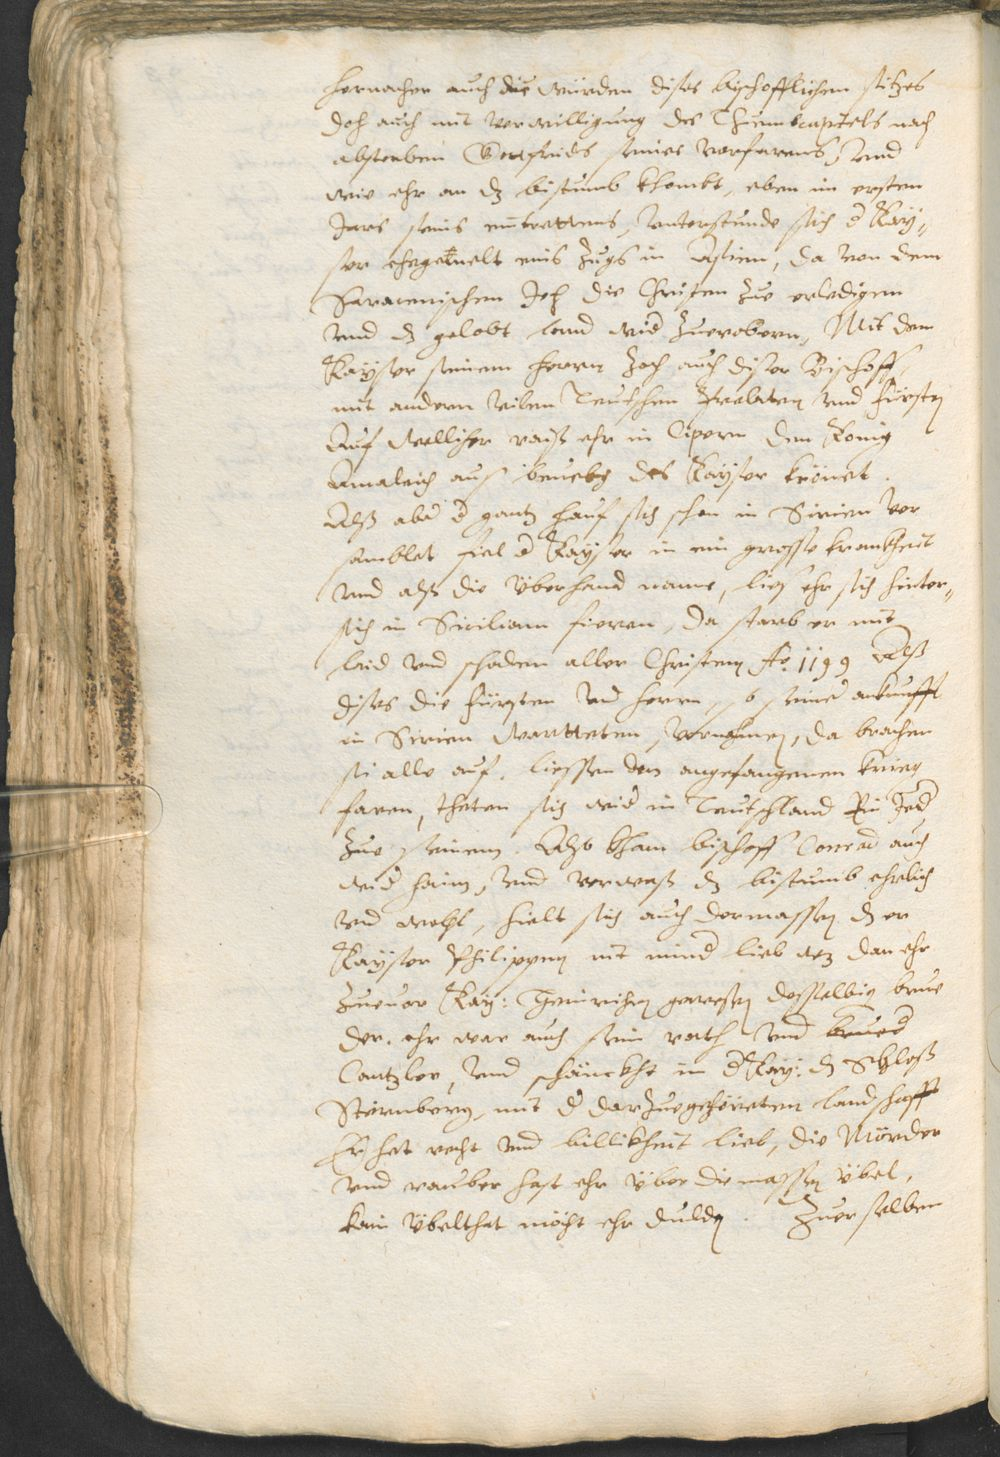 hernacher auch die würden dises bischofflichen sitzes
doch auch mit verwilligung des Thumbcapitels nach
absterben Gottfrids seines vorfarens, und
wie ehr an dz bistumb khombt, eben im ersten
Jars seins eintrettens, understunde sich d Kay„
ser ehegemelt eins Zugs in Asien, da von dem
Saracenischen Joch die Christen zue erledigen
und dz gelobt land wid zuerobern, Mit dem
Kayser seinem herrn zoch auch diser Bischoff,
mit andern vilen Teutschen Prelaten und fürsten
Auf wellicher raiß ehr in Cipern den König
Amalrich aus bevelch des Kayser krönet.
Alß aber d gantz hauf sich schon in Sirien ver
samblet fiel d Kayser in ein grosse krankheit
und alß die überhand name, ließ ehr sich hinter„
sich in Siciliam fieren, da starb er mit
laid und schaden aller Christen Ao. 1199 Alß
dises die fürsten und herrn, so seiner ankunfft
in Sirien warteten, vernahmen, da brachen
si alle auf, liessen den angefangenen krieg
faren, theten sich wid in Teutschland Ein Jed
zue seinem. Also kham bischoff Conrad auch
wid haim, und verwaß dz bistumb ehrlich
und wohl, hielt sich auch dermassen dz er
Kayser Philippen nit mind lieb wz dan ehr
zuuor Kay: Heinrichen gewesen desselbig brue
der. ehr war auch sein rath und
Cantzler, und schänckht im d Kay: dz Schloß
Sternberg, mit d darzuegehörten landschafft
Er het recht und billikheit lieb, die Mörder
und rauber hast ehr über die massen übel,
kein übelthat mocht ehr dulden. Zuer selben